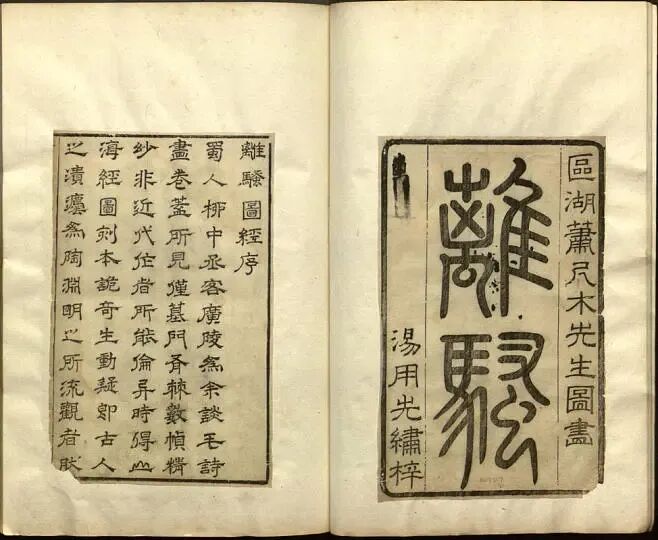 區湖蕭尺木先生圖畫
離騷
湯用先繡梓
離騷圖經序
蜀人柳中丞客廣陵爲余談毛詩
畫卷蓋所見僅墓門斧棘數幀精
紗非近代作者所能倫異時得山
海經圖刻本詭奇生動疑即古人
之漬瀋爲陶淵明之所流觀者肰